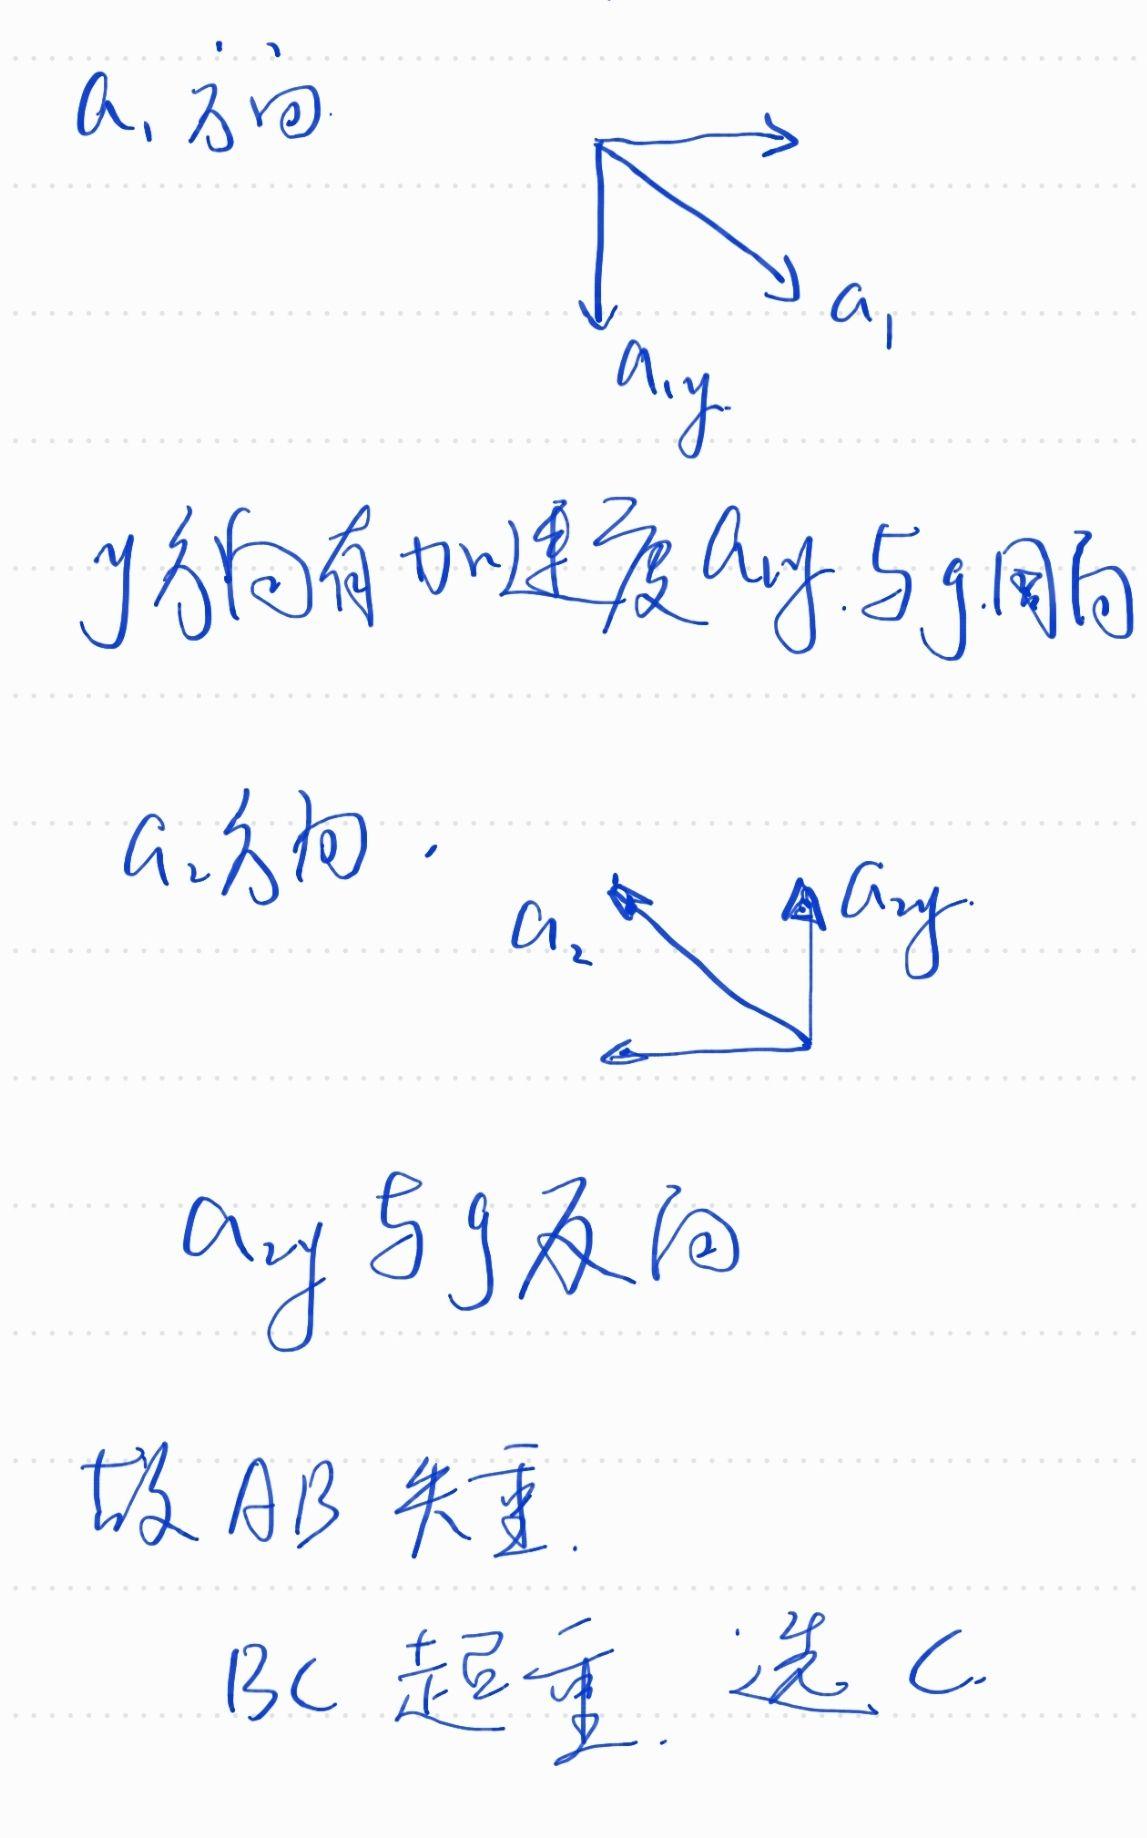 a₁方向
a₁
a₁y
y方向有加速度a₁y.与g.同向
a₂方向.
a₂
a₂y
a₂y与g反向
故AB失重.
BC超重.选C.